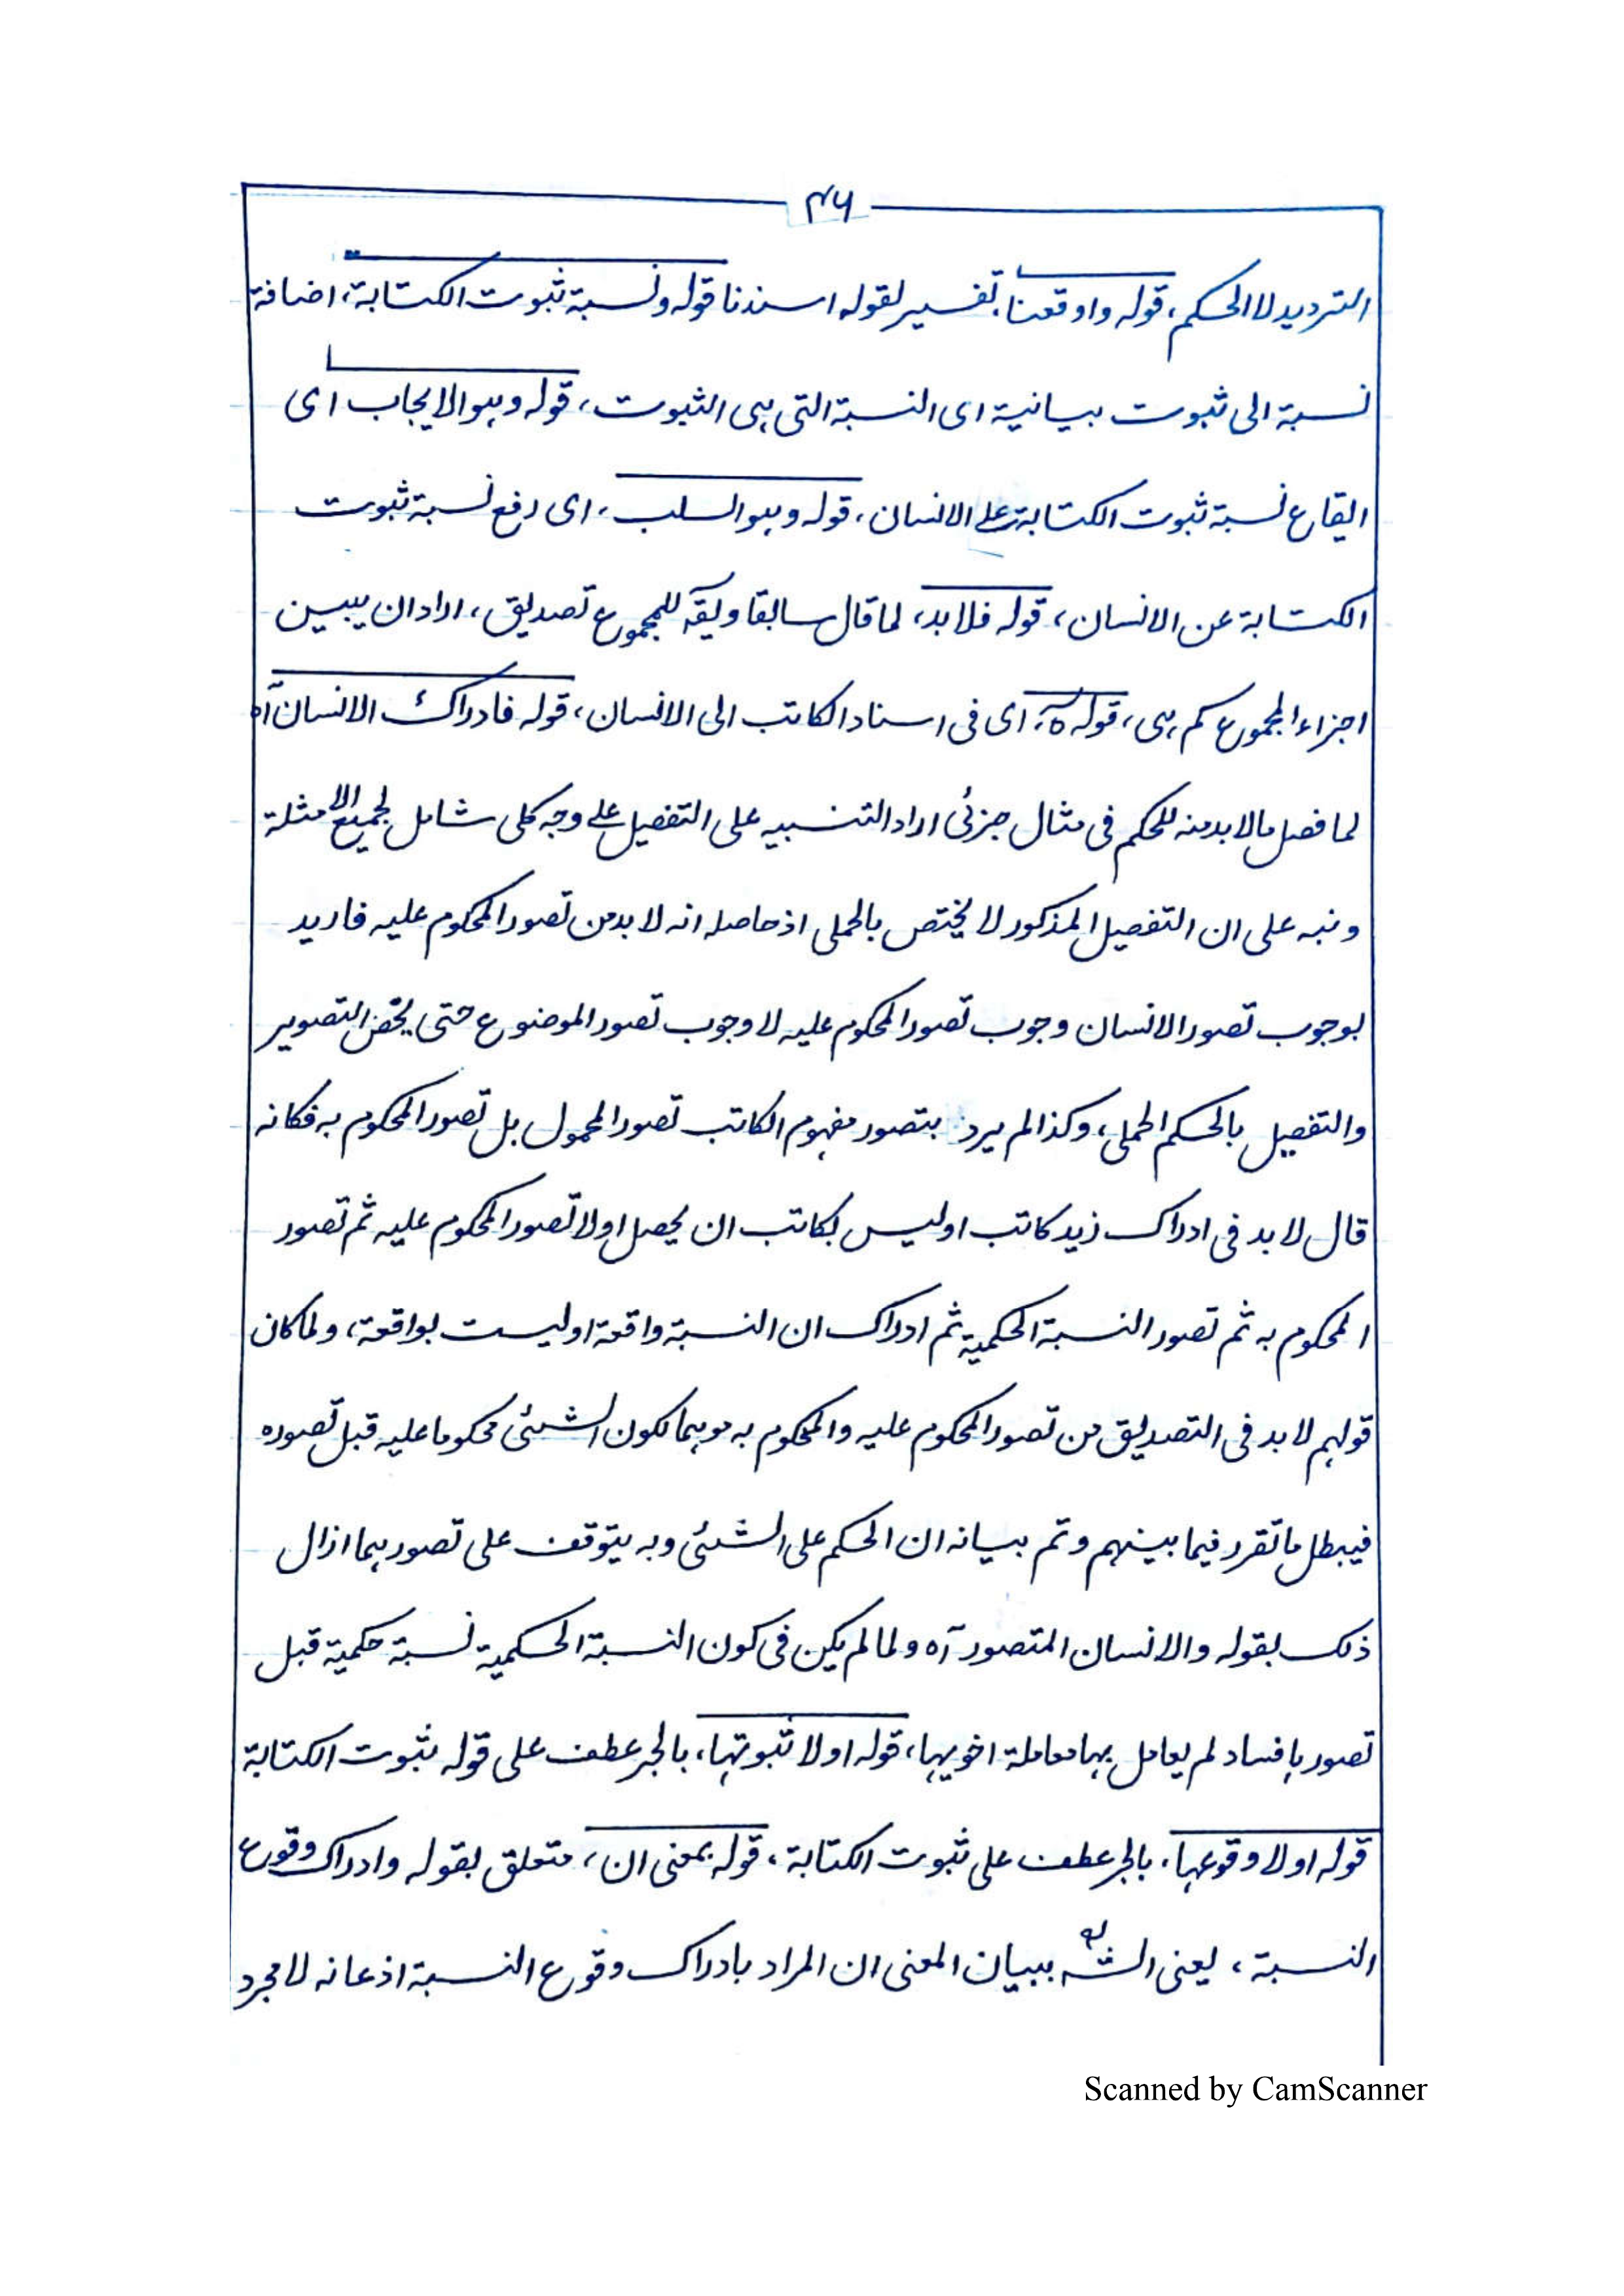 ۴۶
الترديد لا الحكم، قوله واوقعنا، تفسير لقوله اسندنا قوله ونسبة ثبوت الكتابة، اضافة
نسبة الى ثبوت بيانية اى النسبة التى هى الثبوت، قوله وهو الايجاب اى
ايقاع نسبة ثبوت الكتابة على الانسان، قوله وهو السلب، اى رفع نسبة ثبوت
الكتابة عن الانسان، قوله فلا بد، لما قال سابقا ويقہ للمجموع تصديق، اراد ان يبين
اجزاء المجموع كم هى، قوله ه، اى فى اسناد الكاتب الى الانسان، قوله فادراك الانسان آه
لما فصل ما لا بد منه للحكم فى مثال جزئى اراد التنبيه على التفصيل على وجه كلى شامل لجميع الامثلة
ونبه على ان التفصيل المذكور لا يختص بالحملى اذ حاصله انه لا بد من تصور المحكوم عليه فاريد
بوجوب تصور الانسان وجوب تصور المحكوم عليه لا وجوب تصور الموضوع حتى يختص التصوير
والتفصيل بالحكم الحملى، وكذا لم يرد بتصور مفهوم الكاتب تصور المحمول بل تصور المحكوم به فكانه
قال لا بد فى ادراك زيد كاتب او ليس بكاتب ان يحصل اولا تصور المحكوم عليه ثم تصور
المحكوم به ثم تصور النسبة الحكمية ثم ادراك ان النسبة واقعة او ليست بواقعة، ولما كان
قولهم لا بد فى التصديق من تصور المحكوم عليه والمحكوم به موهما لكون الشئى محكوما عليه قبل تصوره
فيبطل ما تقرر فيما بينهم وتم بيانه ان الحكم على الشئى وبه يتوقف على تصورهما ازال
ذلك بقوله والانسان المتصور آه ولما لم يكن فى كون النسبة الحكمية نسبة حكمية قبل
تصورها فساد لم يعامل بها معاملة اخويها، قوله اولا ثبوتها، بالجر عطف على قوله ثبوت الكتابة
قوله اولا وقوعها، بالجر عطف على ثبوت الكتابة، قوله بمعنى ان، متعلق بقوله وادراك وقوع
النسبة، يعنى الشہ ببيان المعنى ان المراد بادراك وقوع النسبة اذعانه لا مجرد
Scanned by CamScanner